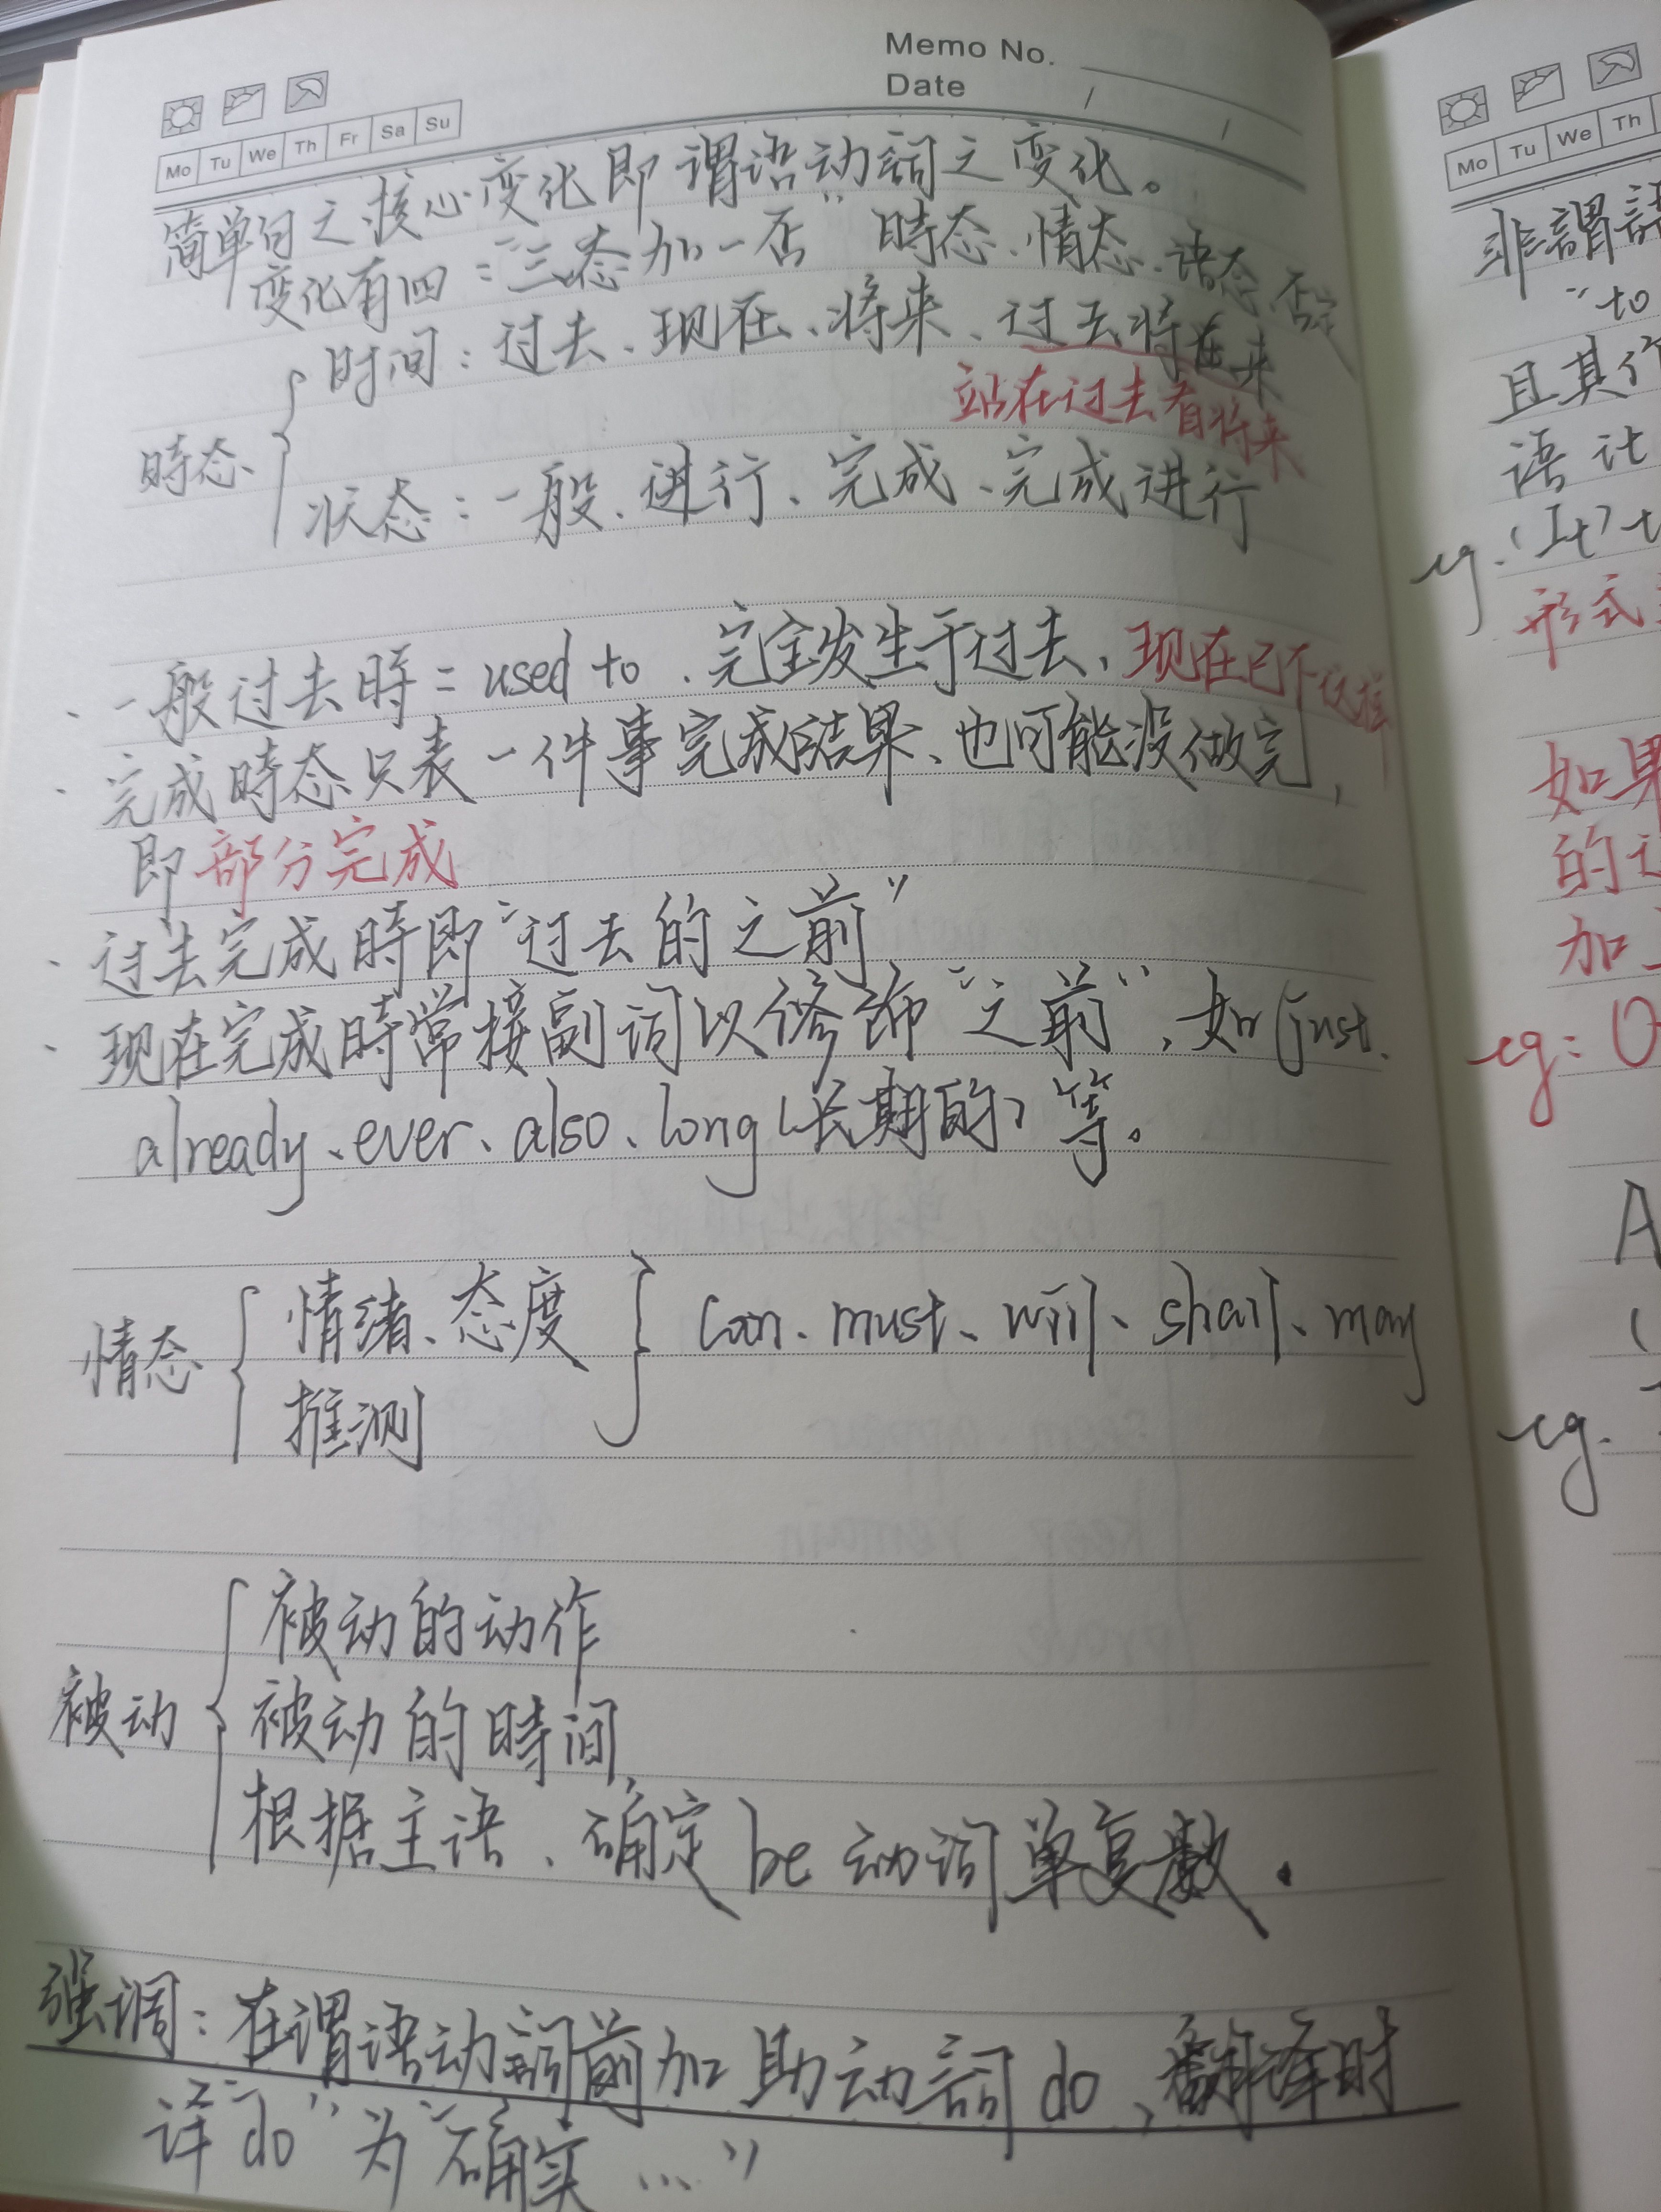 Memo No.
Date / /
Mo Tu We Th Fr Sa Su
简单句之核心变化即谓语动詞之变化。
变化有四:“三态加一否” 時态、情态、语态 否定
时间:过去、现在、将来、过去将来
站在过去看将来
時态
状态:一般、进行、完成、完成进行
· 一般过去時 = used to、完全发生于过去、现在已不这样
· 完成時态只表一件事完成的结果、也可能没做完,
即部分完成
· 过去完成時即“过去的之前”
· 现在完成時常接副词以修饰“之前”,如(just、
already、ever、also、long(长期的)等。
情绪、态度
情态 can、must、will、shall、may
推测
被动的动作
被动 被动的時间
根据主语、确定be动词单复数.
强调:在谓语动詞前加助动詞do,翻译时
译“do”为“确实…”
Mo Tu We Th
非謂語
“to
且其作
语
eg.(It)t
形式
如果
的
加
eg:
A
(
eg.